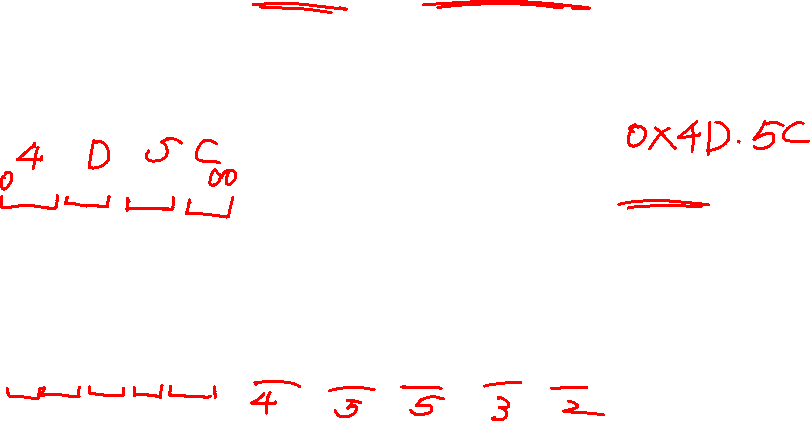 4 D 5 C
0 00
0x4D.5C
4 5 5 3 2